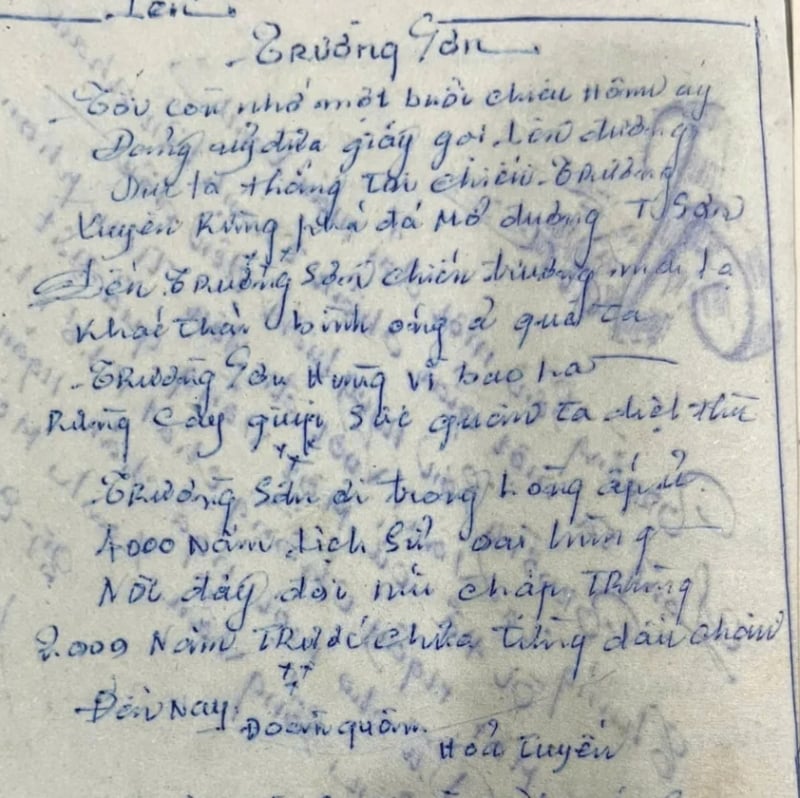 Lên
Trường Sơn
Tôi còn nhớ một buổi chiều hôm ấy
Đảng ủy đưa giấy gọi lên đường
là tháng chiến trường
Xuyên Rừng phá đá Mở đường T. Sơn
Đến Trường Sơn chiến trường mới lạ
Khác thân bình ông ở quá ta
Trường Sơn Hùng vĩ bao la
Rừng Cây quân ta diệt thù
Trường Sơn đi trong lòng ấp ủ
4000 Năm lịch Sử oai hùng
Nơi đây đồi núi chập Trùng
2.000 Năm Trước chưa từng dấu chân
Đến Nay
Đoàn quân
Hỏa Tuyến